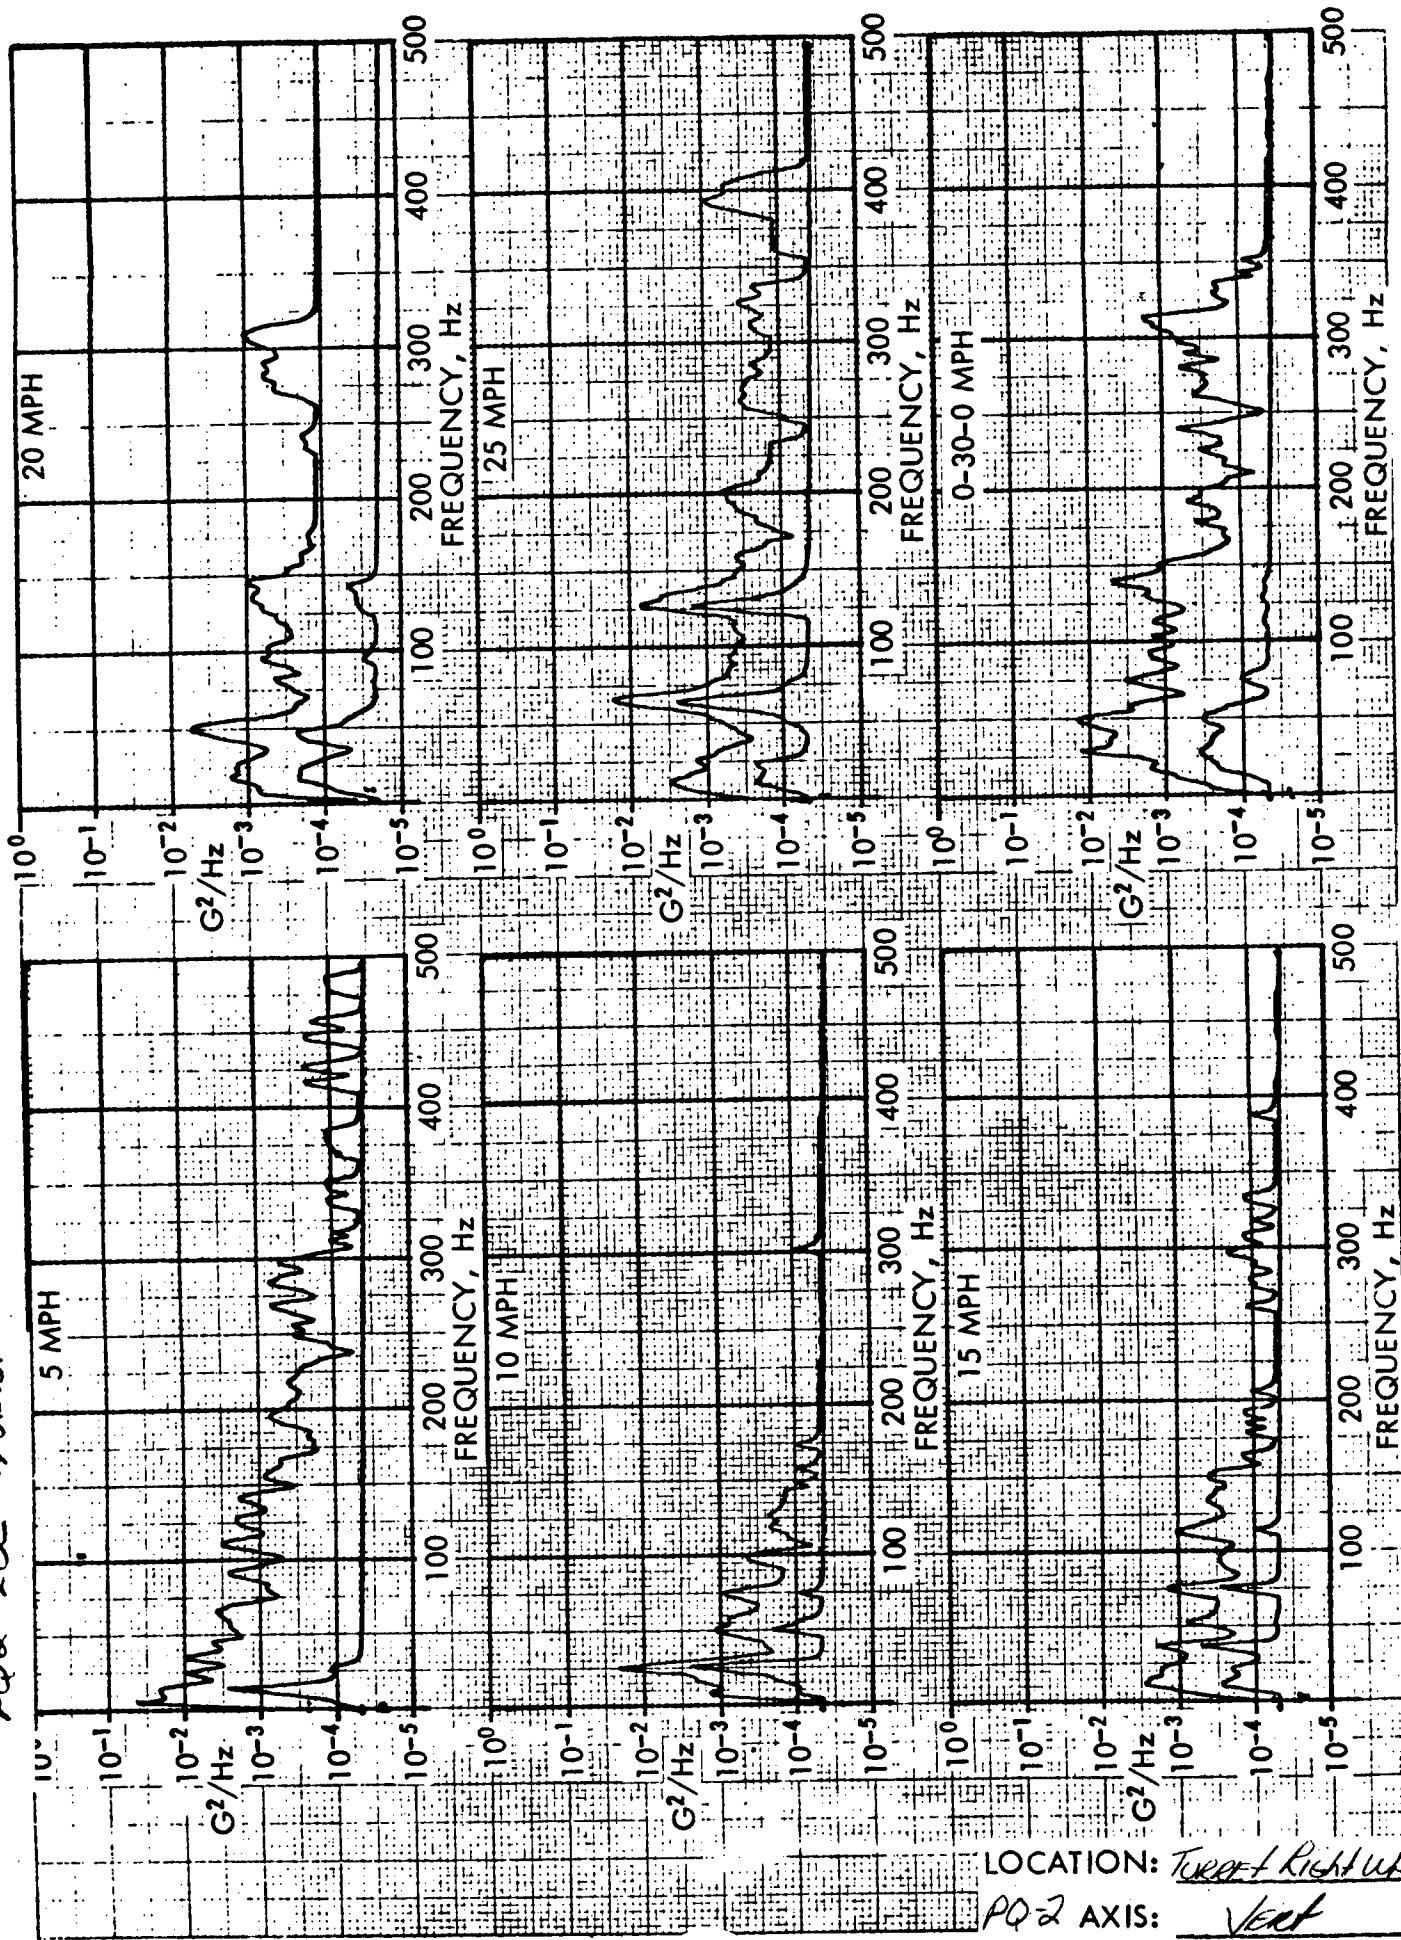 5 MPH
10⁻¹
10⁻²
10⁻³
10⁻⁴
10⁻⁵
G²/Hz
100
200
300
400
500
FREQUENCY, Hz
10 MPH
10⁰
10⁻¹
10⁻²
10⁻³
10⁻⁴
10⁻⁵
G²/Hz
100
200
300
400
500
FREQUENCY, Hz
15 MPH
10⁰
10⁻¹
10⁻²
10⁻³
10⁻⁴
10⁻⁵
G²/Hz
100
200
300
400
500
FREQUENCY, Hz
20 MPH
10⁰
10⁻¹
10⁻²
10⁻³
10⁻⁴
10⁻⁵
G²/Hz
100
200
300
400
500
FREQUENCY, Hz
25 MPH
10⁰
10⁻¹
10⁻²
10⁻³
10⁻⁴
10⁻⁵
G²/Hz
100
200
300
400
500
FREQUENCY, Hz
0-30-0 MPH
10⁰
10⁻¹
10⁻²
10⁻³
10⁻⁴
10⁻⁵
G²/Hz
100
200
300
400
500
FREQUENCY, Hz
LOCATION: Turret Right
PQ-2 AXIS: Vert